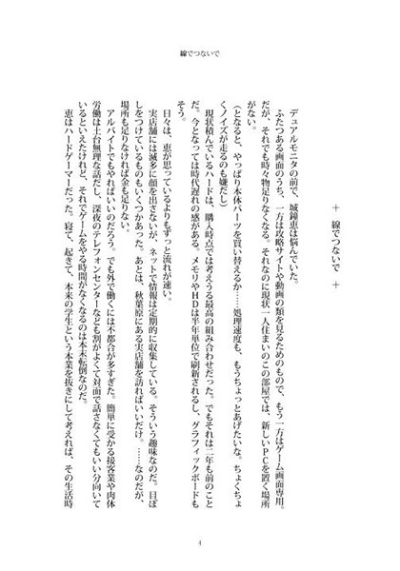 線でつないで
+ 線でつないで +
デュアルモニタの前で、城鐘恵は悩んでいた。
ふたつある画面のうち、一方は攻略サイトや動画の類を見るためのもので、もう一方はゲーム画面専用。
だが、それでも時々物足りなくなる。それなのに現状一人住まいのこの部屋では、新しいPCを置く場所
がない。
(となると、やっぱり本体パーツを買い替えるか……処理速度も、もうちょっとあげたいな。ちょくちょ
くノイズが走るのも嫌だし)
現状積んでいるハードは、購入時点では考えうる最高の組み合わせだった。でもそれは二年も前のこと
だ。今となっては時代遅れの感がある。メモリやHDは半年単位で刷新されるし、グラフィックボードも
そう。
日々は、恵が思っているよりもずっと流れが速い。
実店舗には滅多に顔を出さないが、ネットで情報は定期的に収集している。そういう趣味なのだ。目ぼ
しをつけているものもいくつかあった。あとは、秋葉原にある実店舗を訪ねればいいだけ。……なのだが、
場所も足りなければ金も足りない。
アルバイトでもやればいいのだろう。でも外で働くには不都合が多すぎた。簡単に受かる接客業や肉体
労働は土台無理な話だし、深夜のテレフォンセンターなども割がよくて対面で話さなくてもいい分向いて
いるといえたけれど、それでゲームをやる時間がなくなるのは本末転倒なのだ。
恵はハードゲーマーだった。寝て、起きて、本来の学生という本業を抜きにして考えれば、その生活時